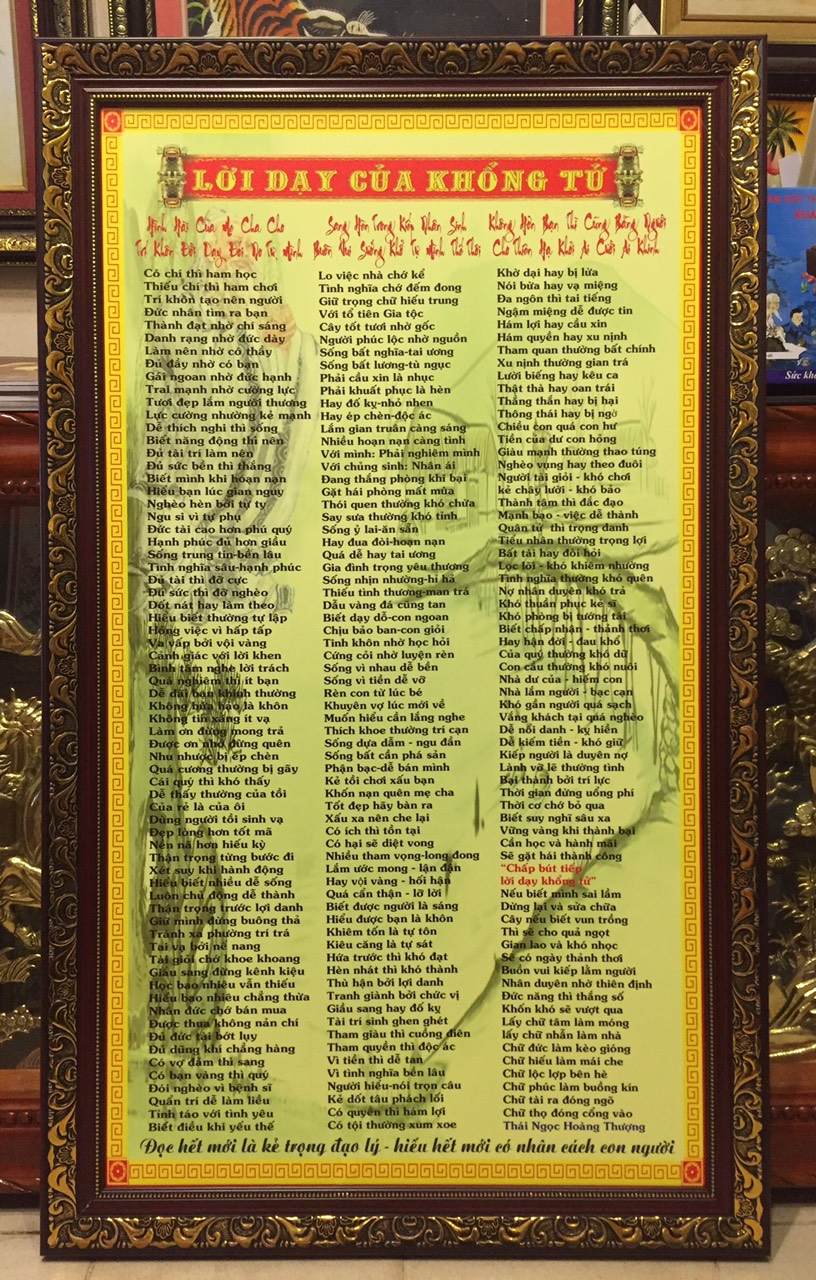 LỜI DẠY CỦA KHỔNG TỬ
Hình Hài Của Mẹ Cha Cho
Trí Khôn Đời Dạy Đói No Tự Mình
Sang Hèn Trong Kiếp Nhân Sinh
Buồn Vui Sướng Khổ Tự Mình Mà Thôi
Không Hơn Bạn Thì Cũng Bằng Người
Cho Thân Mẹ Khỏi Ai Cười Ai Khinh
Có chí thì ham học
Thiếu chí thì ham chơi
Trí khôn tạo nên người
Đức nhân tìm ra bạn
Thành đạt nhờ chí sáng
Danh rạng nhờ đức dày
Làm nên nhờ có thầy
Đủ đầy nhờ có bạn
Gái ngoan nhờ đức hạnh
Trai mạnh nhờ cường lực
Tươi đẹp lắm người thương
Lực cường nhường kẻ mạnh
Dễ thích nghi thì sống
Biết năng động thì nên
Đủ tài trí làm nên
Đủ sức bền thì thắng
Biết mình khi hoạn nạn
Hiểu bạn lúc gian nguy
Nghèo hèn bởi tự ty
Ngu si vì tự phụ
Đức tài cao hơn phú quý
Hạnh phúc đủ hơn giầu
Sống trung tín-bền lâu
Tình nghĩa sâu-hạnh phúc
Đủ tài thì đỡ cực
Đủ sức thì đỡ nghèo
Dốt nát hay làm theo
Hiểu biết thường tự lập
Hỏng việc vì hấp tấp
Va vấp bởi vội vàng
Cảnh giác với lời khen
Bình tâm nghe lời trách
Quá nghiêm thì ít bạn
Dễ dãi bạn khinh thường
Không hứa hão là khôn
Không tin xằng ít vạ
Làm ơn đừng mong trả
Được ơn nhớ đừng quên
Nhu nhược bị ép chèn
Quá cương thường bị gãy
Cái quý thì khó thấy
Dễ thấy thường của tồi
Của rẻ là của ôi
Dùng người tồi sinh vạ
Đẹp lòng hơn tốt mã
Nền nã hơn hiếu kỳ
Thận trọng từng bước đi
Xét suy khi hành động
Hiểu biết nhiều dễ sống
Luôn chủ động dễ thành
Thận trọng trước lợi danh
Giữ mình đừng buông thả
Tránh xa phường trí trá
Tai vạ bởi nể nang
Tài giỏi chớ khoe khoang
Giầu sang đừng kênh kiệu
Học bao nhiêu vẫn thiếu
Hiểu bao nhiêu chẳng thừa
Nhân đức chớ bán mua
Được thua không nản chí
Đủ đức tài bớt lụy
Đủ dũng khí chẳng hàng
Có vợ đảm thì sang
Có bạn vàng thì quý
Đói nghèo vì bệnh sĩ
Quẫn trí dễ làm liều
Tỉnh táo với tình yêu
Biết điều khi yếu thế
Lo việc nhà chớ kể
Tình nghĩa chớ đếm đong
Giữ trọng chữ hiếu trung
Với tổ tiên Gia tộc
Cây tốt tươi nhờ gốc
Người phúc lộc nhờ nguồn
Sống bất nghĩa-tai ương
Sống bất lương-tù ngục
Phải cầu xin là nhục
Phải khuất phục là hèn
Hay đố kỵ-nhỏ nhen
Hay ép chèn-độc ác
Lắm gian truân càng sáng
Nhiều hoạn nạn càng tinh
Với mình: Phải nghiêm minh
Với chúng sinh: Nhân ái
Đang thắng phòng khi bại
Gặt hái phòng mất mùa
Thói quen thường khó chừa
Say sưa thường khó tỉnh
Sống ỷ lại-ăn sẵn
Hay đua đòi-hoạn nạn
Quá dễ hay tai ương
Gia đình trọng yêu thương
Sống nhịn nhường-hỉ hả
Thiếu tình thương-man trá
Dẫu vàng đá cũng tan
Biết dạy dỗ-con ngoan
Chịu bảo ban-con giỏi
Tinh khôn nhờ học hỏi
Cứng cỏi nhờ luyện rèn
Sống vì nhau dễ bền
Sống vì tiền dễ vỡ
Rèn con từ lúc bé
Khuyên vợ lúc mới về
Muốn hiểu cần lắng nghe
Thích khoe thường trí cạn
Sống dựa dẫm - ngu đần
Sống bất cần phá sản
Phận bạc-dễ bán mình
Kẻ tồi chơi xấu bạn
Khốn nạn quên mẹ cha
Tốt đẹp hãy bàn ra
Xấu xa nên che lại
Có ích thì tồn tại
Có hại sẽ diệt vong
Nhiều tham vọng-long đong
Lắm ước mong - lận đận
Hay vội vàng - hối hận
Quá cẩn thận - lỡ lời
Biết được người là sáng
Hiểu được bạn là khôn
Khiêm tốn là tự tôn
Kiêu căng là tự sát
Hứa trước thì khó đạt
Hèn nhát thì khó thành
Thù hận bởi lợi danh
Tranh giành bởi chức vị
Giầu sang hay đố kỵ
Tài trí sinh ghen ghét
Tham giàu thì cuồng điên
Tham quyền thì độc ác
Vì tiền thì dễ tan
Vì tình nghĩa bền lâu
Người hiểu-nói trọn câu
Kẻ dốt tâu phách lối
Có quyền thì hám lợi
Có tội thường xum xoe
Khờ dại hay bị lừa
Nói bừa hay vạ miệng
Đa ngôn thì tai tiếng
Ngậm miệng dễ được tin
Hám lợi hay cầu xin
Hám quyền hay xu nịnh
Tham quan thường bất chính
Xu nịnh thường gian trá
Lười biếng hay kêu ca
Thật thà hay oan trái
Thẳng thắn hay bị hại
Thông thái hay bị ngờ
Chiều con quá con hư
Tiền của dư con hỏng
Giàu mạnh thường thao túng
Nghèo vụng hay theo đuôi
Người tài giỏi - khó chơi
kẻ chây lười - khó bảo
Thành tâm thì đắc đạo
Mạnh bạo - việc dễ thành
Quân tử thì trọng danh
Tiểu nhân thường trọng lợi
Bất tài hay đòi hỏi
Lọc lõi - khó khiêm nhường
Tình nghĩa thường khó quên
Nợ nhân duyên khó trả
Khó thuần phục kẻ sĩ
Khó phòng bị tướng tài
Biết chấp nhận - thảnh thơi
Hay hận đời - đau khổ
Của quý thường khó dữ
Con cầu thường khó nuôi
Nhà dư của - hiếm con
Nhà lắm người - bạc cạn
Khó gần người quá sạch
Vắng khách tại quá nghèo
Dễ nổi danh - kỵ hiền
Dễ kiếm tiền - khó giữ
Kiếp người là duyên nợ
Lành vỡ lẽ thường tình
Bại thành bởi trí lực
Thời gian đừng uổng phí
Thời cơ chớ bỏ qua
Biết suy nghĩ sâu xa
Vững vàng khi thành bại
Cần học và hành mãi
Sẽ gặt hái thành công
"Chấp bút tiếp
lời dạy khổng tử"
Nếu biết mình sai lầm
Dừng lại và sửa chữa
Cây nếu biết vun trồng
Thì sẽ cho quả ngọt
Gian lao và khó nhọc
Sẽ có ngày thảnh thơi
Buồn vui kiếp lắm người
Nhân duyên nhờ thiên định
Đức năng thì thắng số
Khốn khó sẽ vượt qua
Lấy chữ tâm làm móng
lấy chữ nhẫn làm nhà
Chữ đức làm kèo gióng
Chữ hiếu làm mái che
Chữ lộc lợp bên hè
Chữ phúc làm buồng kín
Chữ tài ra đóng ngõ
Chữ thọ đóng cổng vào
Thái Ngọc Hoàng Thượng
Đọc hết mới là kẻ trọng đạo lý - hiểu hết mới có nhân cách con người
Sức khỏ